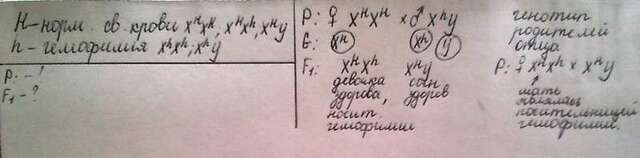 H-норм. св. крови XᴴXᴴ, XᴴXʰ, XᴴY
h-гемофилия XʰXʰ; XʰY
P. -!
F₁-?
P: ♀ XᴴXᴴ × ♂ XʰY
G: Xᴴ Xʰ Y
F₁: XᴴXʰ XᴴY
девочка сын
здорова, здоров
носит.
гемофилии
генотип
родителей
отца
P: ♀ XᴴXʰ × XᴴY
мать
являлась
носительницей
гемофилии.